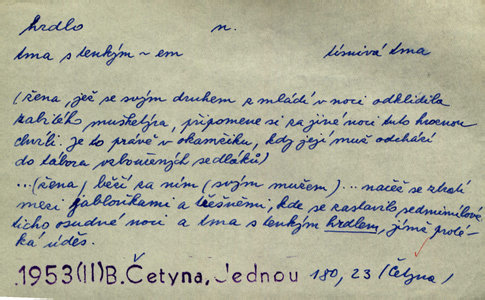 hrdlo n.
tma s tenkým ~ em tísnivá tma
(žena, jež se svým druhem z mládí v noci odklidila
zabitého mušketýra, připomene si za jiné noci tuto hroznou
chvíli je to právě v okamžiku, kdy její muž odchází
do tábora vzbouřených sedláků)
...(žena) běží za ním (svým mužem)... načež se ztratí
mezi jabloňkami a třešněmi, kde se zastavilo sedmimílové
ticho osudné noci a tma s tenkým hrdlem, jímž proté-
ká úděs.
1953(II)B.Četyna, Jednou 180, 23 (Četyna)